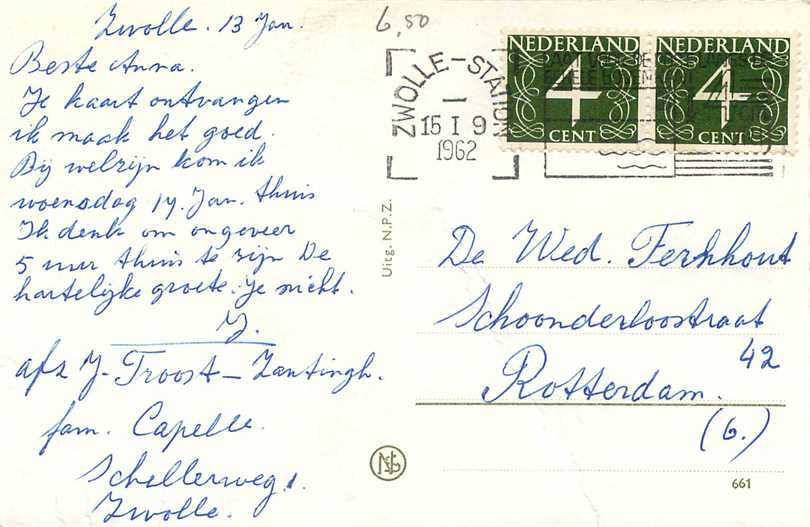 Zwolle. 13 Jan.
Beste Anna.
Je kaart ontvangen
ik maak het goed.
Bij welzijn kom ik
woensdag 17. Jan. thuis
Ik denk om ongeveer
5 uur thuis te zijn De
hartelijke groete. Je nicht.
J.
afz J. Troost-Zantingh.
fam. Capelle.
Schellerweg 1.
Zwolle.
6,50
ZWOLLE-STATION
15 I 9
1962
NEDERLAND
4
CENT
NEDERLAND
4
CENT
Uitg. N.P.Z.
De Wed. Ferkhout
Schoonderloostraat
42
Rotterdam.
(6.)
661